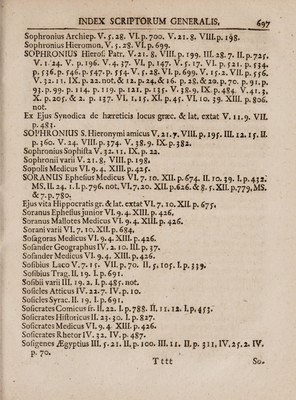 INDEX SCRIPTORUM GENERALIS. 697
Sophronius Archiep. V. 5. 28. VI. p. 700. V. 21. 8. VIII. p. 198.
Sophronius Hieromon. V. 5. 28. VI. p. 699.
SOPHRONIUS Hierof. Patr. V. 21. 8. VIII. p. 199. III. 28. 7. II. p. 725.
V. 1. 24. V. p. 196. V. 4. 37. VI. p. 147. V. 5. 17. VI. p. 521. p. 534.
p. 536. p. 546. p. 547. p. 554. V. 5. 28. VI. p. 699. V. 15. 2. VII. p. 556.
V. 32. 11. IX. p. 22. not. & 12. p. 24. & 16. p. 28. & 20. p. 70. p. 91. p.
93. p. 99. p. 114. p. 119. p. 121. p. 135. V. 38. 9. IX. p. 484. V. 41. 3.
X. p. 205. & 2. p. 137. VI. 1. 15. XI. p. 45. VI. 10. 39. XIII. p. 806.
not.
Ex Ejus Synodica de hæreticis locus græc. & lat. extat V. 11. 9. VII.
p. 483.
SOPHRONIUS S. Hieronymi amicus V. 21. 7. VIII. p. 195. III. 12. 15. II.
p. 360. V. 24. VIII. p. 374. V. 38. 9. IX. p. 382.
Sophronius Sophista V. 32. 11. IX. p. 22.
Sophronii varii V. 21. 8. VIII. p. 198.
Sopolis Medicus VI. 9. 4. XIII. p. 425.
SORANUS Ephesius Medicus VI. 7. 10. XII. p. 674. II. 10. 39. I. p. 432.
MS. II. 24. 1. I. p. 796. not. VI. 7. 20. XII. p. 626. & 8. 5. XII. p. 779. MS.
& 7. p. 780.
Ejus vita Hippocratis gr. & lat. extat VI. 7. 10. XII. p. 675.
Soranus Ephesius junior VI. 9. 4. XIII. p. 426.
Soranus Mallotes Medicus VI. 9. 4. XIII. p. 426.
Sorani varii VI. 7. 10. XII. p. 684.
Sosagoras Medicus VI. 9. 4. XIII. p. 426.
Sosander Geographus IV. 2. 10. III. p. 37.
Sosander Medicus VI. 9. 4. XIII. p. 426.
Sosibius Laco V. 7. 15. VII. p. 70. II. 5. 105. I. p. 339.
Sosibius Trag. II. 19. I. p. 691.
Sosibii varii III. 19. 2. I. p. 485. not.
Sosicles Atticus IV. 22. 7. IV. p. 10.
Sosicles Syrac. II. 19. I. p. 691.
Sosicrates Comicus fr. II. 22. I. p. 788. II. 11. 12. I. p. 453.
Sosicrates Historicus II. 23. 30. I. p. 827.
Sosicrates Medicus VI. 9. 4 XIII. p. 426.
Sosicrates Rhetor IV. 32. IV. p. 487.
Sosigenes Ægyptius III. 5. 21. II. p. 100. III. 11. II. p. 311. IV. 25. 2. IV.
p. 70.
T t t t So.